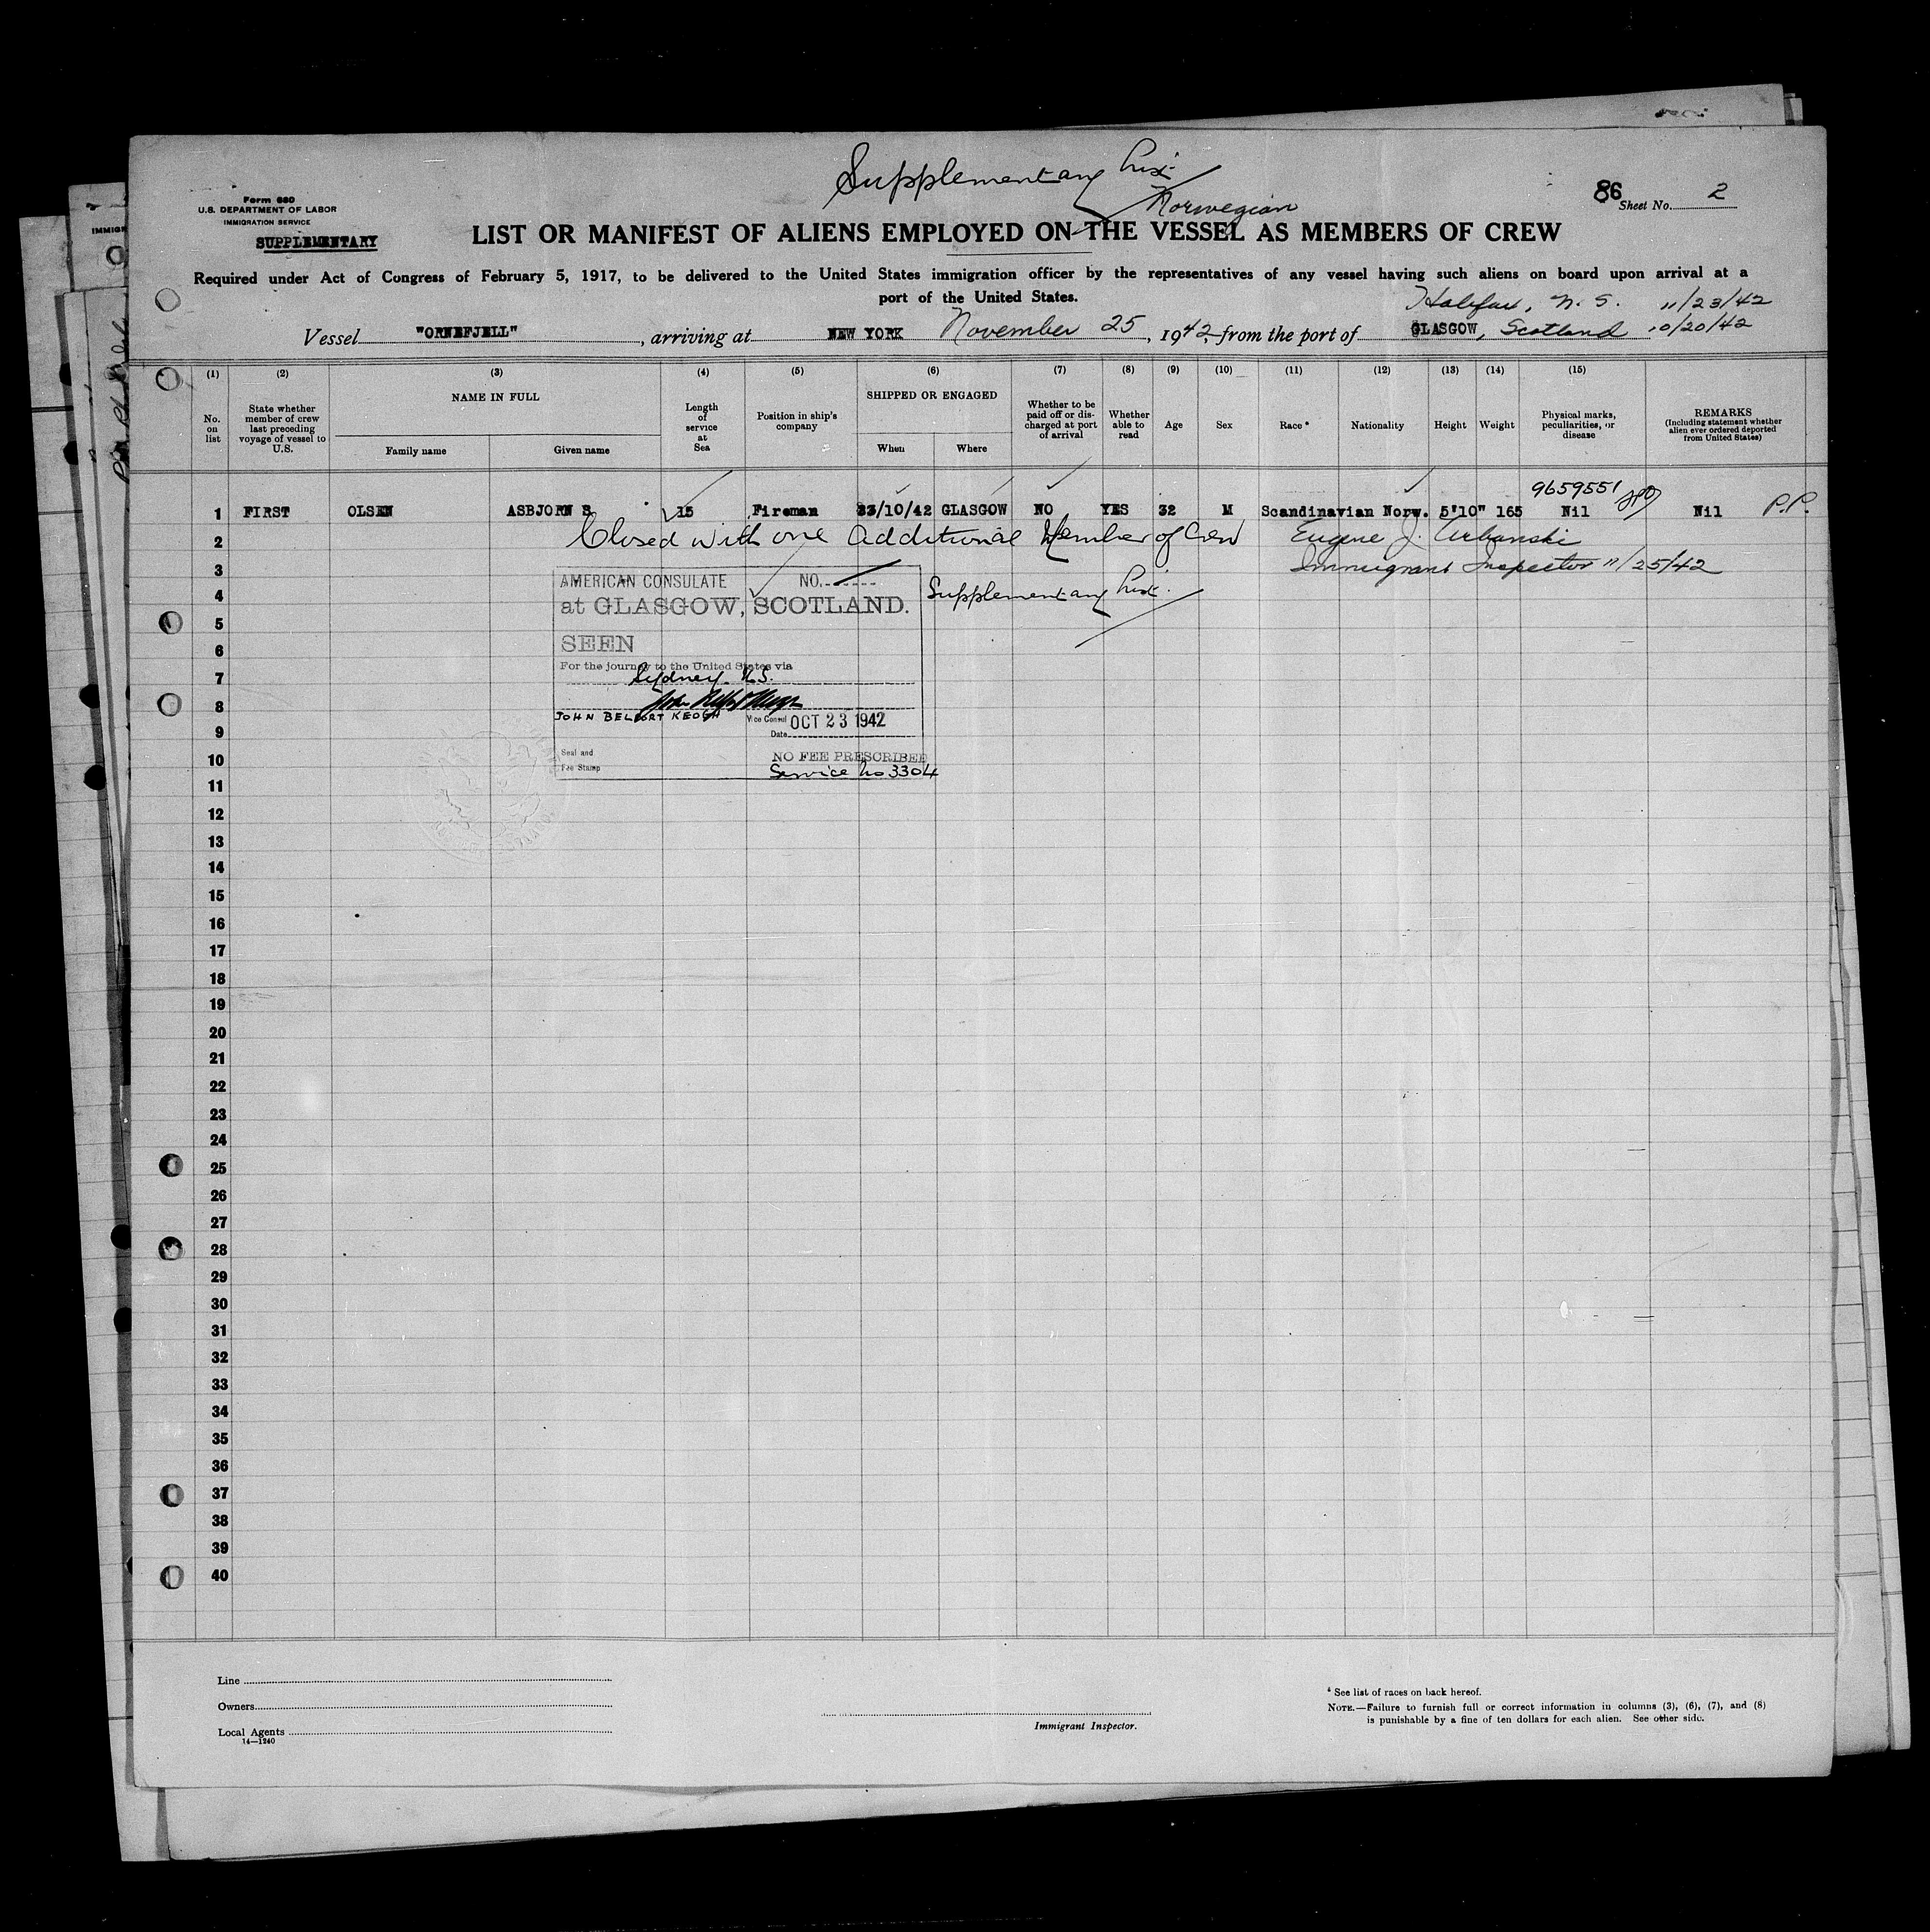 Supplementary List
Norwegian
Form 680
U.S. DEPARTMENT OF LABOR
IMMIGRATION SERVICE
SUPPLEMENTARY
86
Sheet No. 2
LIST OR MANIFEST OF ALIENS EMPLOYED ON THE VESSEL AS MEMBERS OF CREW
Required under Act of Congress of February 5, 1917, to be delivered to the United States immigration officer by the representatives of any vessel having such aliens on board upon arrival at a
port of the United States.
Halifax, N. S. 11/23/42
Vessel "ORNEFJELL", arriving at NEW YORK November 25, 1942, from the port of GLASGOW, Scotland 10/20/42
(1) (2) (3) (4) (5) (6) (7) (8) (9) (10) (11) (12) (13) (14) (15)
No. on list
State whether member of crew last preceding voyage of vessel to U.S.
NAME IN FULL
Family name
Given name
Length of service at Sea
Position in ship's company
SHIPPED OR ENGAGED
When
Where
Whether to be paid off or discharged at port of arrival
Whether able to read
Age
Sex
Race *
Nationality
Height
Weight
Physical marks, peculiarities, or disease
REMARKS
(Including statement whether alien ever ordered deported from United States)
9659551
1 FIRST OLSEN ASBJORN S 15 Fireman 23/10/42 GLASGOW NO YES 32 M Scandinavian Norw. 5'10" 165 Nil Nil P.P.
2 Closed with one additional Member of Crew Eugene J. Urbanski
3 Immigrant Inspector 11/25/42
4 Supplementary List.
AMERICAN CONSULATE NO.
at GLASGOW, SCOTLAND.
SEEN
For the journey to the United States via
Sydney N.S.
JOHN BELFORT KEOGH Vice Consul
Date OCT 23 1942
Seal and
Fee Stamp
NO FEE PRESCRIBED
Service No 3304
5
6
7
8
9
10
11
12
13
14
15
16
17
18
19
20
21
22
23
24
25
26
27
28
29
30
31
32
33
34
35
36
37
38
39
40
Line
Owners
Local Agents
14—1240
Immigrant Inspector.
* See list of races on back hereof.
NOTE.—Failure to furnish full or correct information in columns (3), (6), (7), and (8)
is punishable by a fine of ten dollars for each alien. See other side.